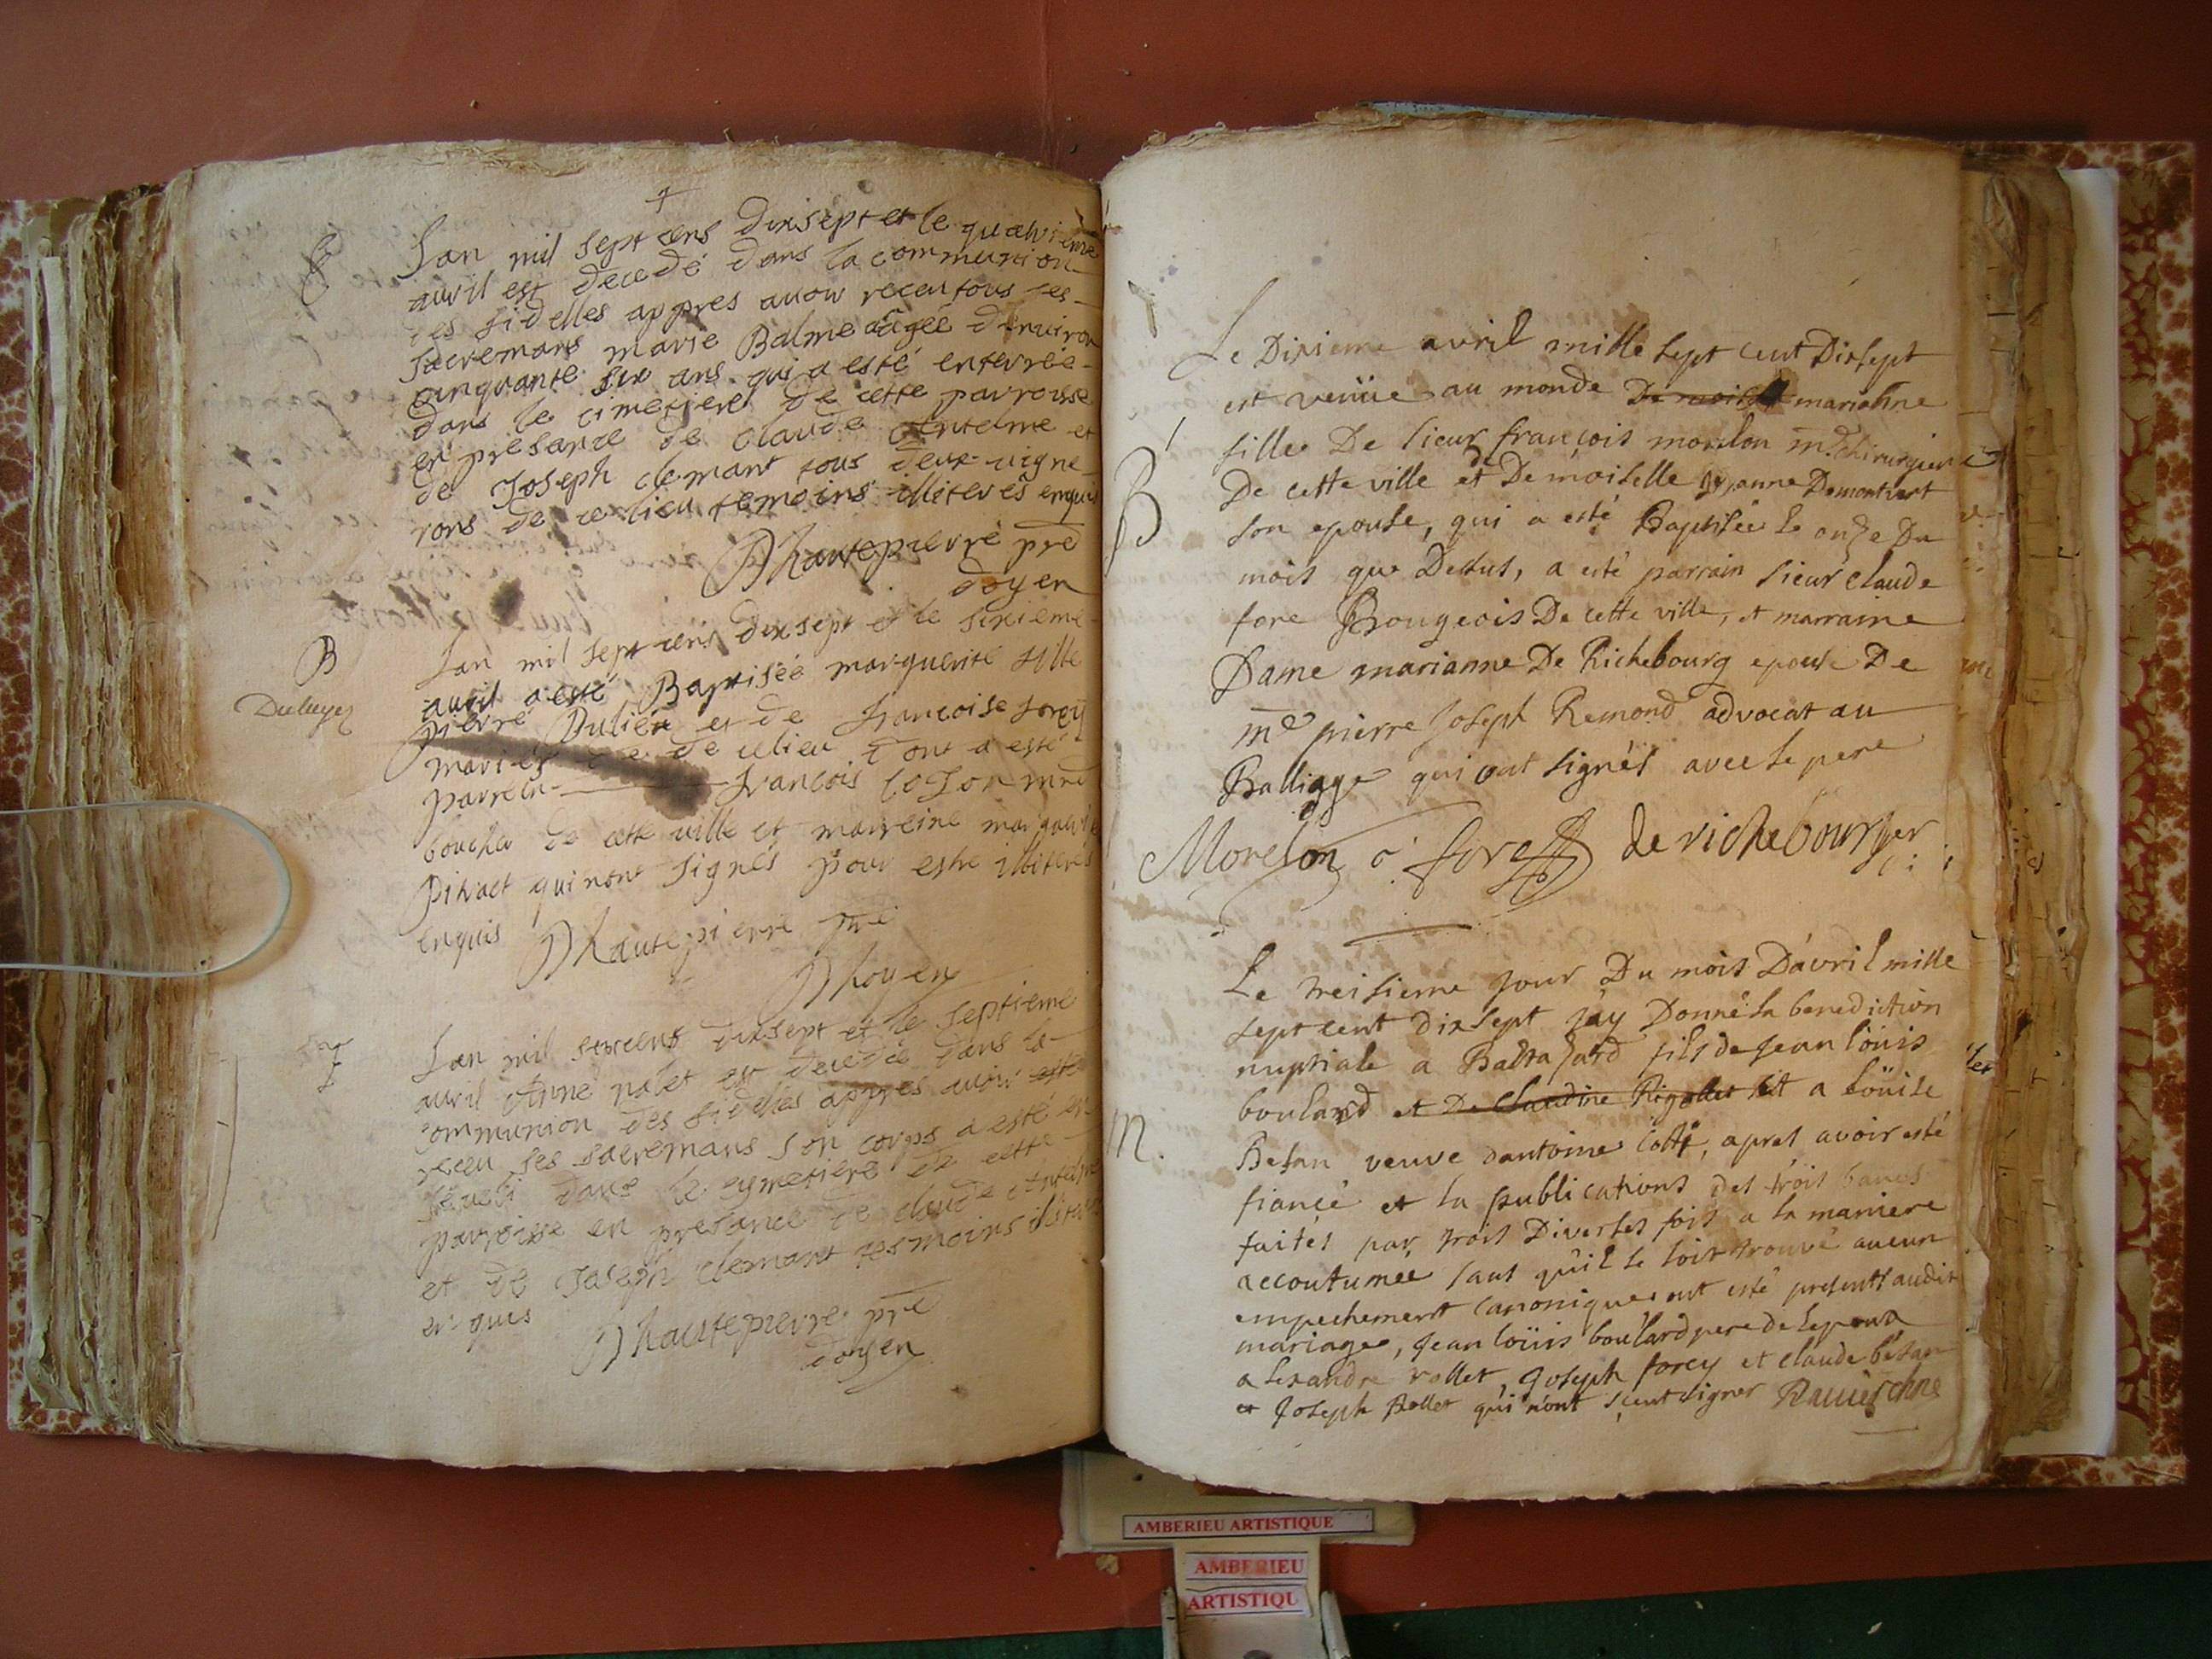 Lan mil sept cens dixsept et le quatrieme
auvil est decedé dans la communion
des fidelles appres avoir receu tous ses
sacremans marie Balme aâgée denviron
cinquante six ans qui a esté enterrée
dans le cimetiere de cette parroisse
en presance de claude Antelme et
de Joseph clemant tous deux vigne
rons de ce lieu temoins illiterés enquis
Dhautepierre pre
doyen
B
Lan mil sept cens dixsept et le sixieme
auvil a esté Baptisée marguerite fille
pierre Dulier et de francoise forey
mariés de celieu dont a esté
parrein francois mre
boucher de cette ville et marreine
qui nont signés pour estre illiterés
enquis Dhautepierre pre
Dhoyen
Lan mil dixsept et le septieme
auvil Anne est decedée dans la
communion des fidelles appres avoir esté
receu ses sacremans son corps a esté en
seveli dans le cymetiere de cette
parroisse en presance de claude Antelme
et de Joseph clemant tesmoins
enquis Dhautepierre pre
doyen
Le Dixieme avril mille sept cent Dixsept
est venüe au monde Demoiselle marianne
fille De sieur françois morelon me chirurgien
B
De cette ville et De moiselle anne Demontvert
son epouse, qui a esté Baptisée le onze Du
mois que Dessus, a esté parrain sieur claude
fore Bougeois De cette ville, et marraine
Dame marianne De Richebourg epouse De
me pierre Joseph Remond advocat au
Balliage qui ont signés avec le pere
Morelon c. fore de richebourg
Le treisieme jour Du mois D'avril mille
sept cent dixsept j'ay Donné la benediction
nuptiale a Baltasard fils de jean loüis
boulard et De Claudine Rigollet et a loüise
M.
Besan veuve dantoine , apres avoir esté
fiancé et la publications des trois bancs
faités par trois Diverses fois a la maniere
accoutumee sans qu'il se soit trouvé aucun
empechement canonique ont esté presents audit
mariage, jean loüis boulard pere de lepoux
alexandre rollet, joseph forey et claude besan
et joseph Rollet qui n'ont sceut signer Ravier chne
AMBERIEU ARTISTIQUE
AMBERIEU
ARTISTIQU